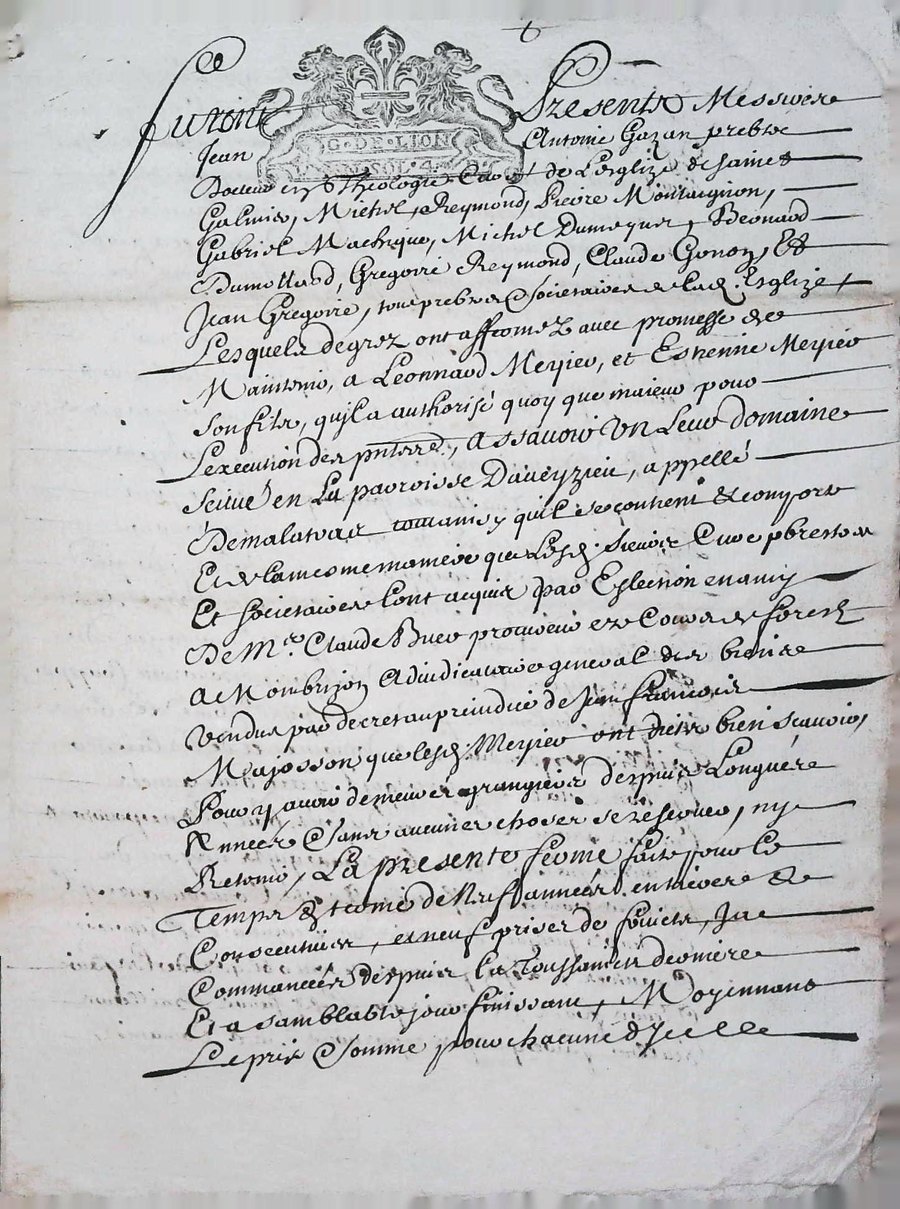 Furent Presents Messieurs
G. DE LION
Jean Antoine Gazan prebtre
SOL. 4.
Docteur en Theologie Curé de Lesglize de Sainct
Galmier, Michel Reymond, Pierre Montaignon,
Gabriel Mathique, Michel Dumeynet, Bernard
Dumollard, Gregoire Reymond, Claude Gonon, Et
Jean Gregoire, tous prebtres Societaires de lad. Esglize
Lesquels de grez ont affermez avec promesse de
Maintenir, a Leonnard Meyrieu, et Estienne Meyrieu
son fils, quil a authorisé quoy que maieur pour
Lexecution des pntes, Assavoir Un Leur domaine
scitué en La parroisse Daveyzieu, appellé
De malatras tout ainsy quil se contient & comporte
Et de la mesme maniere que Lesd. sieurs Curé pbrestres
Et societaires Lont acquis par Eslection en amy
De Mr. Claude Buer procureur ez Cours de forest
A Montbrison Adiudicataire general des biens
vendus par decret au preiudice de Jean francois
Majosson que lesd. Meyrieu ont dict bien scavoir,
Pour y avoir demeuré grangiers despuis Longues
Années Sans aucunes choses se reserver, ny
Retenir, La presente ferme faite pour le
Temps & terme de Neuf années entieres &
Consecutives, et neuf prises de fruicts, Ja
Commancées despuis la Toussaincts derniere
Et a samblable jour finissant, Moyennant
Le prix & Somme pour chacune dycelle